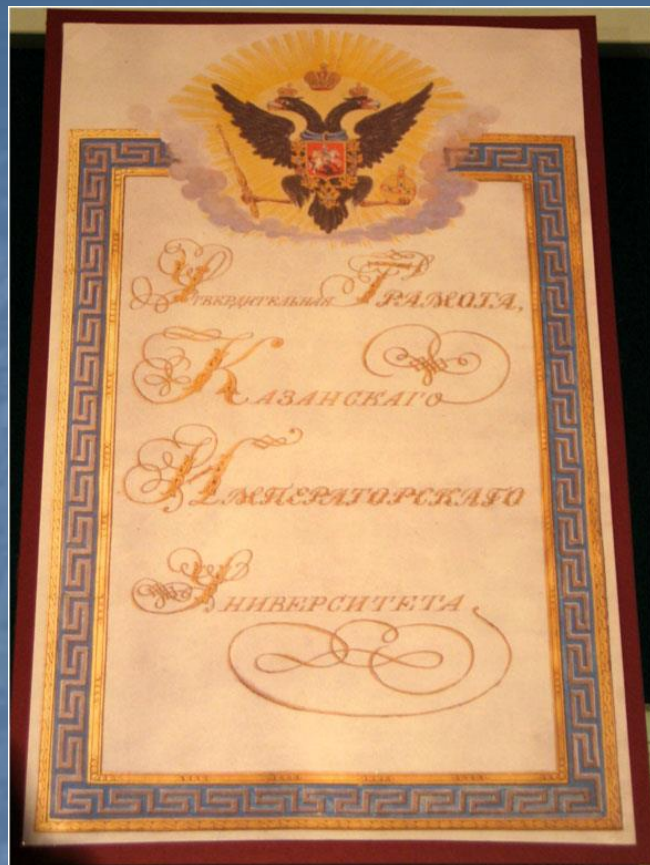 Утвердительная Грамота,
Казанскаго
Императорскаго
Университета